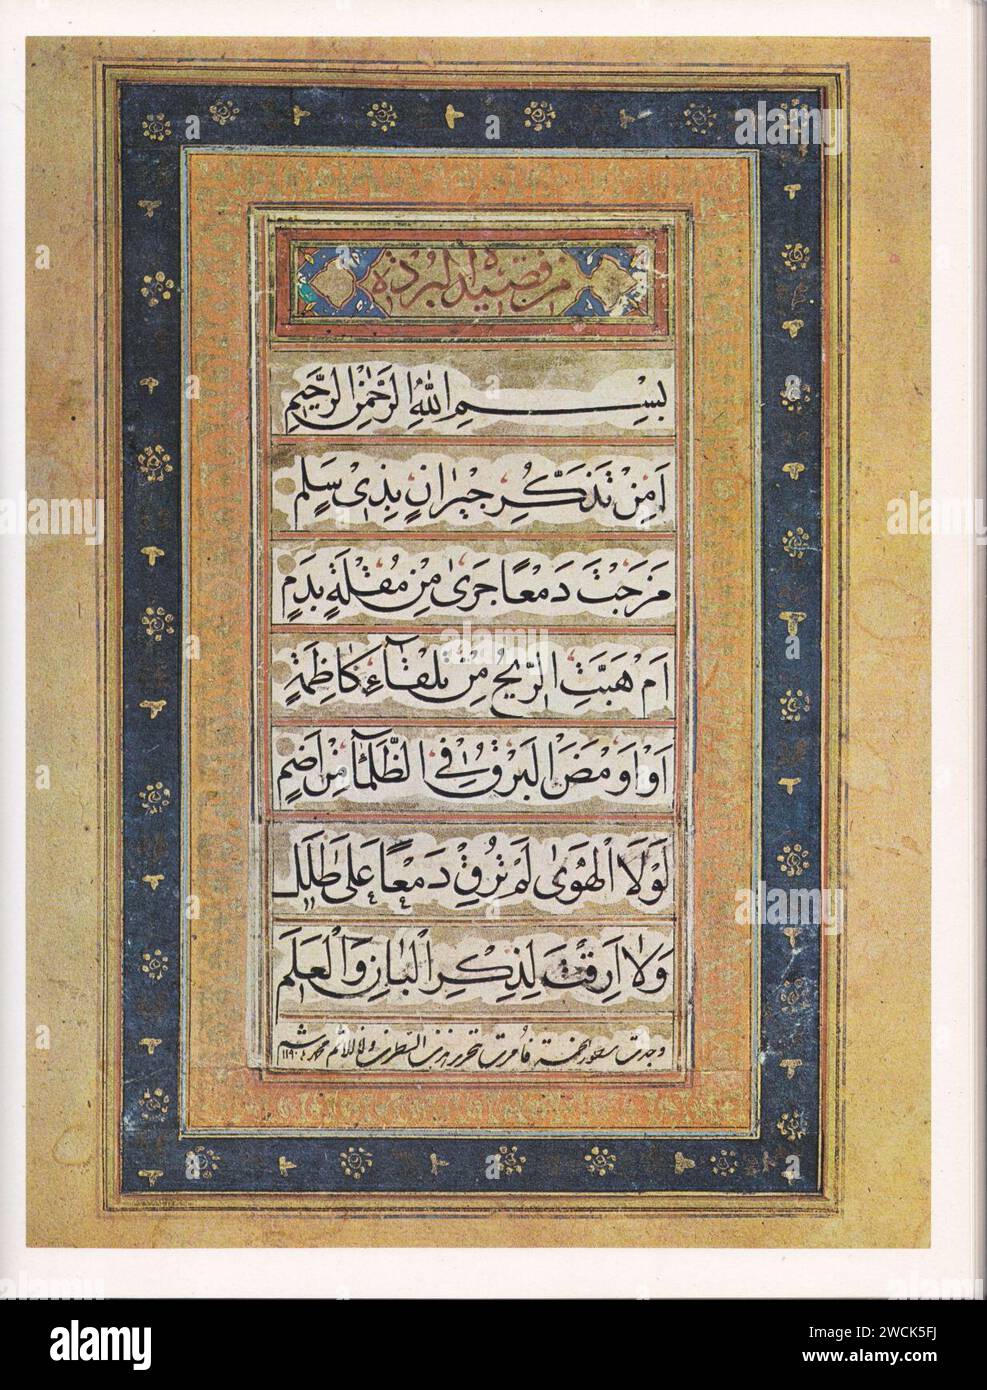 من قصيدة البردة
بِسْمِ اللّٰهِ الرَّحْمٰنِ الرَّحِيمِ
اَمِنْ تَذَكُّرِ جِيْرَانٍ بِذِي سَلَمٍ
مَزَجْتَ دَمْعًا جَرٰى مِنْ مُقْلَةٍ بِدَمٍ
اَمْ هَبَّتِ الرِّيحُ مِنْ تِلْقَآءِ كَاظِمَةٍ
اَوْ اَوْمَضَ الْبَرْقُ فِي الظَّلْمَآءِ مِنْ اِضَمٍ
لَوْلَا الْهَوٰى لَمْ تُرِقْ دَمْعًا عَلٰى طَلَلٍ
وَلَا اَرِقْتَ لِذِكْرِ الْبَانِ وَالْعَلَمِ
alamy
Image ID: 2WCK5FJ
www.alamy.com